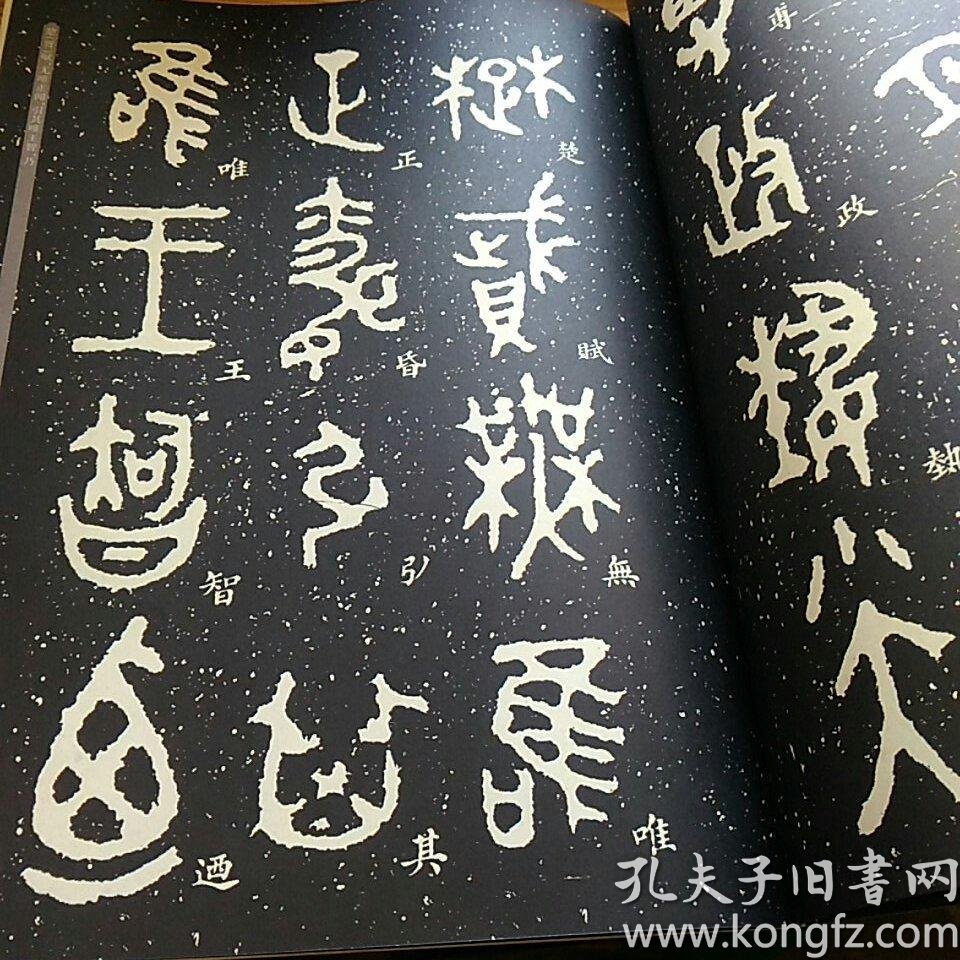 尃政埶小大
楚賦無唯
正昏引其
唯王智迺
孔夫子旧書网
www.kongfz.com